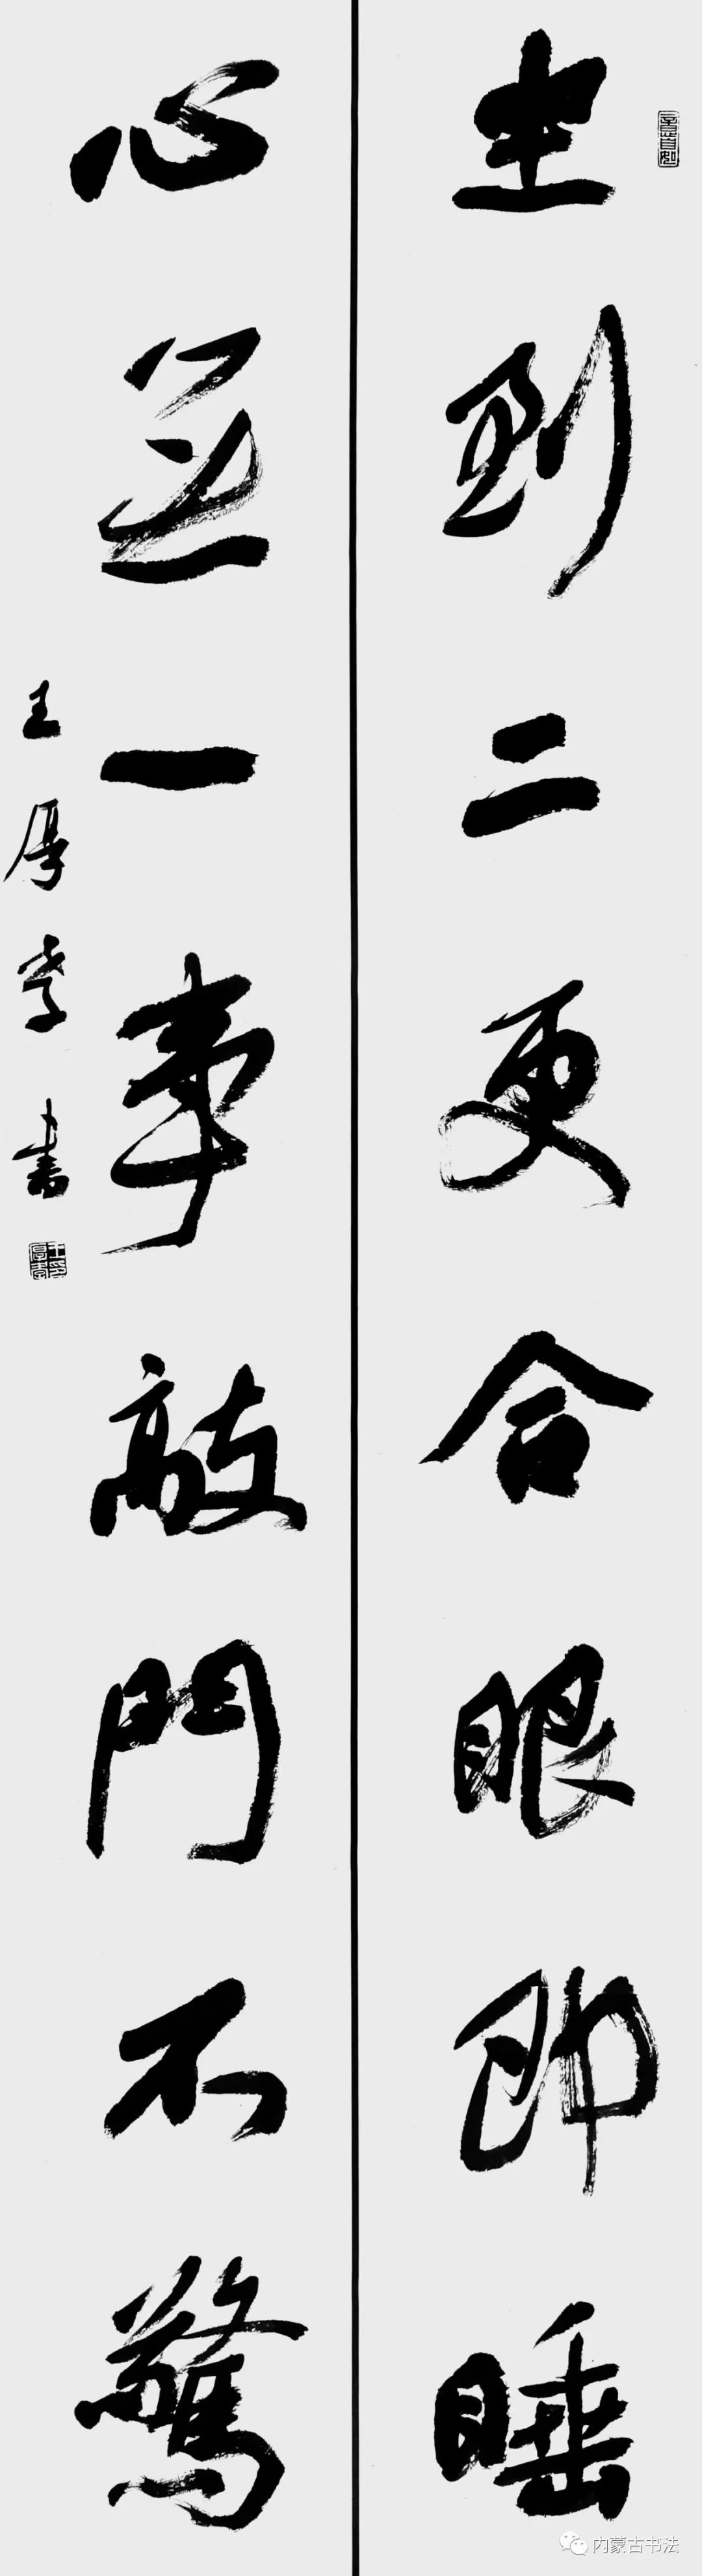 坐到二更合眼即睡
心無一事敲門不驚
王厚孝書
内蒙古书法